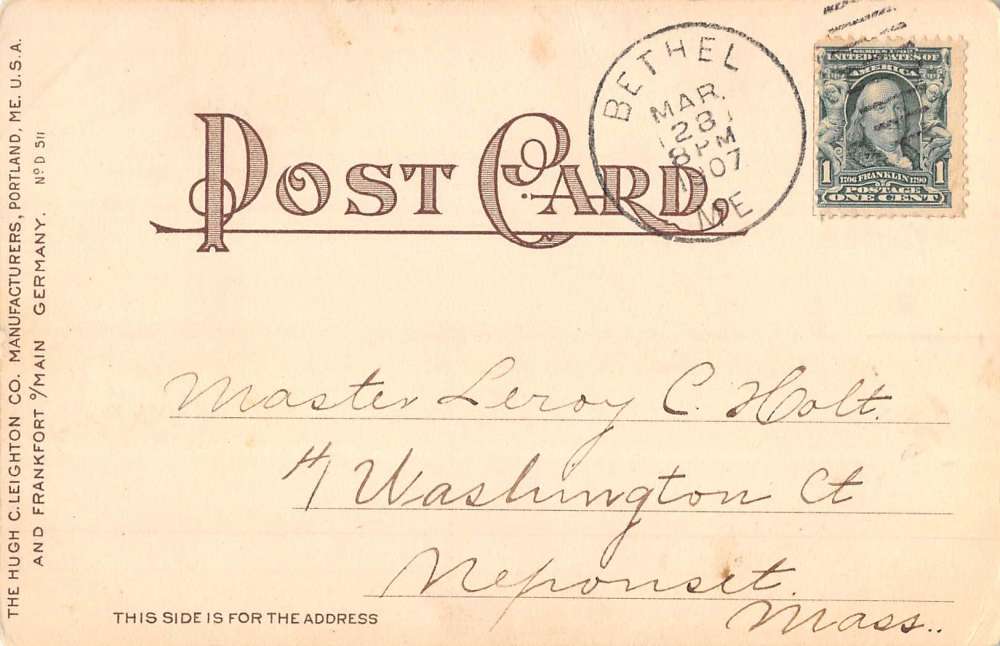 THE HUGH C. LEIGHTON CO. MANUFACTURERS, PORTLAND, ME. U.S.A.
AND FRANKFORT o/MAIN GERMANY. No D 511
POST CARD
BETHEL
MAR.
28
8 PM
1907
ME
SERIES 1902
UNITED STATES OF
AMERICA
1 1
1706 FRANKLIN 1790
POSTAGE
ONE CENT
Master Leroy C. Holt.
4 Washington Ct
Neponset.
Mass..
THIS SIDE IS FOR THE ADDRESS